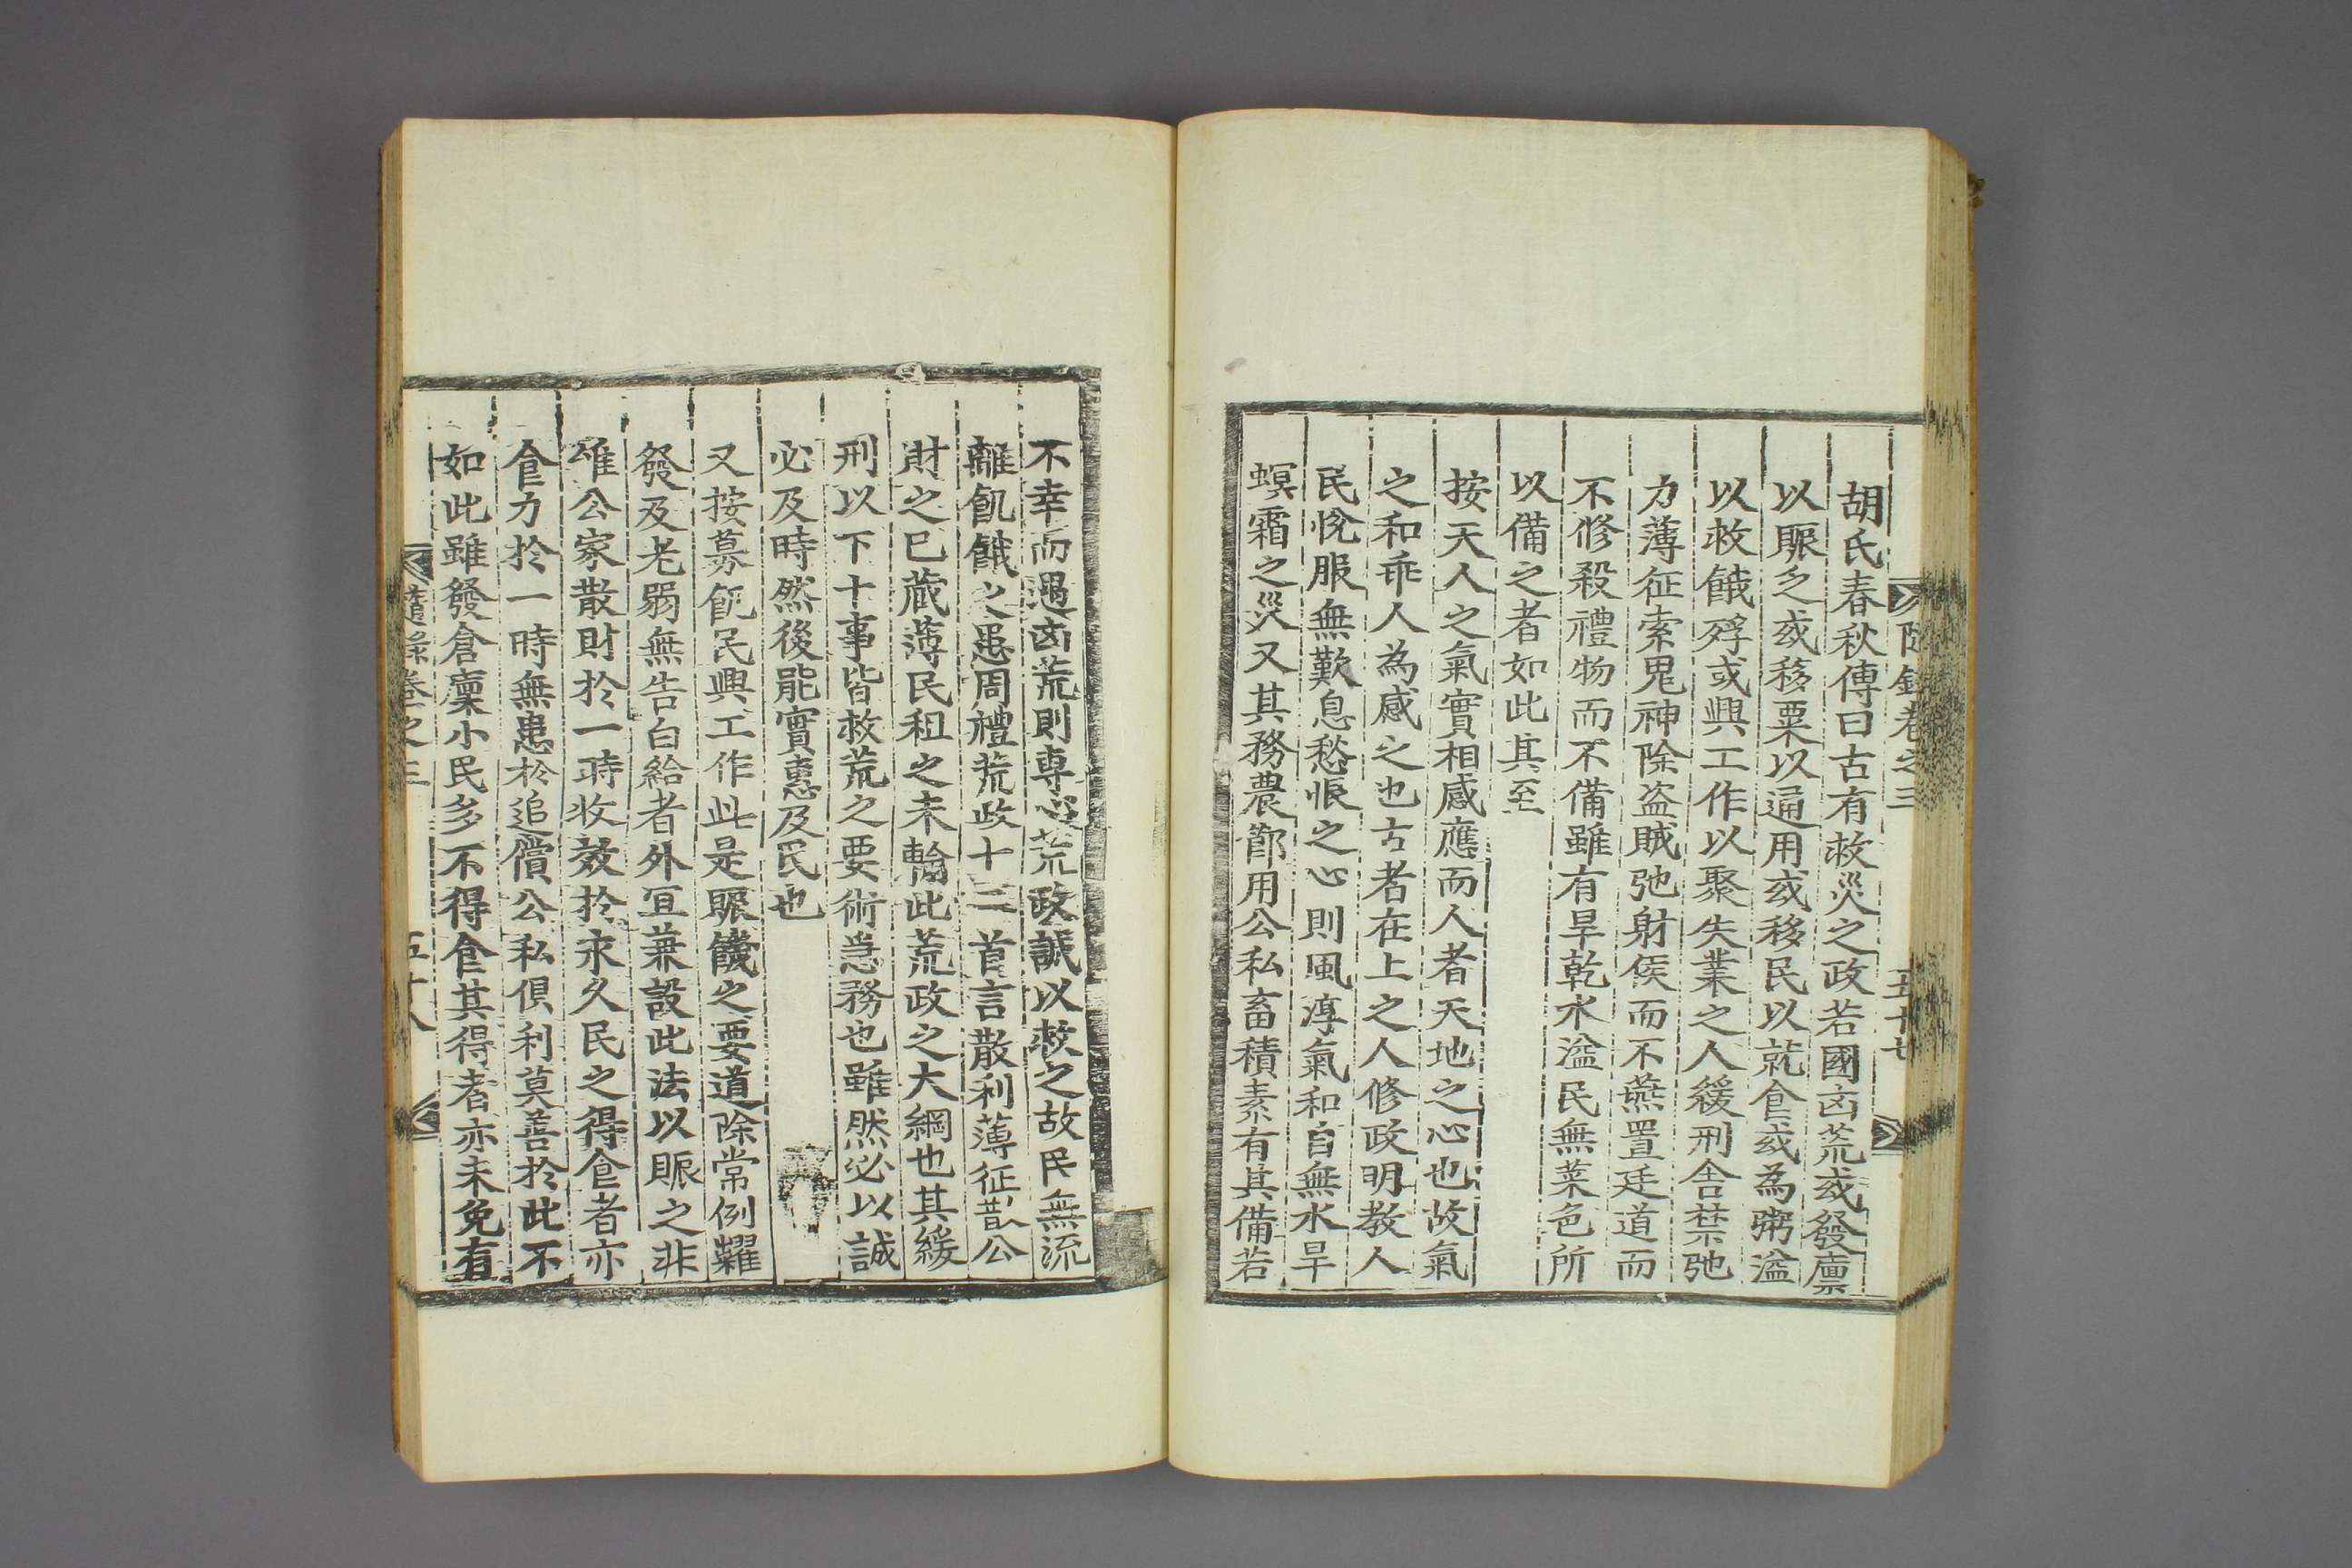 隨錄卷之三 五十七
胡氏春秋傳曰古有救災之政若國凶荒或發廩
以賑乏或移粟以通用或移民以就食或為粥溢
以救餓殍或興工作以聚失業之人緩刑舍禁弛
力薄征索鬼神除盗賊弛射侯而不燕置廷道而
不修殺禮物而不備雖有旱乾水溢民無菜色所
以備之者如此其至
按天人之氣實相感應而人者天地之心也故氣
之和乖人為感之也古者在上之人修政明教人
民悅服無歎息愁恨之心則風淳氣和自無水旱
螟霜之災又其務農節用公私畜積素有其備若
不幸而遇凶荒則專心荒政誠以救之故民無流
離飢餓之患周禮荒政十二首言散利薄征散公
財之已藏薄民租之未輸此荒政之大綱也其緩
刑以下十事皆救荒之要術急務也雖然必以誠
必及時然後能實惠及民也
又按募飢民興工作此是賑饑之要道除常例糶
發及老弱無告白給者外宜兼設此法以賑之非
唯公家散財於一時收效於永久民之得食者亦
食力於一時無患於追償公私俱利莫善於此不
如此雖發倉廩小民多不得食其得者亦未免有
隨錄卷之三 五十八